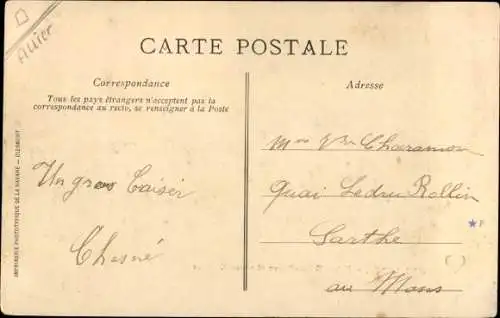 Allier
CARTE POSTALE
Correspondance
Tous les pays étrangers n'acceptent pas la
correspondance au recto, se renseigner à la Poste
Un gros Baiser
Chesné
Adresse
Mme Vve
Quai Ledru Rollin
Sarthe
au Mans
F